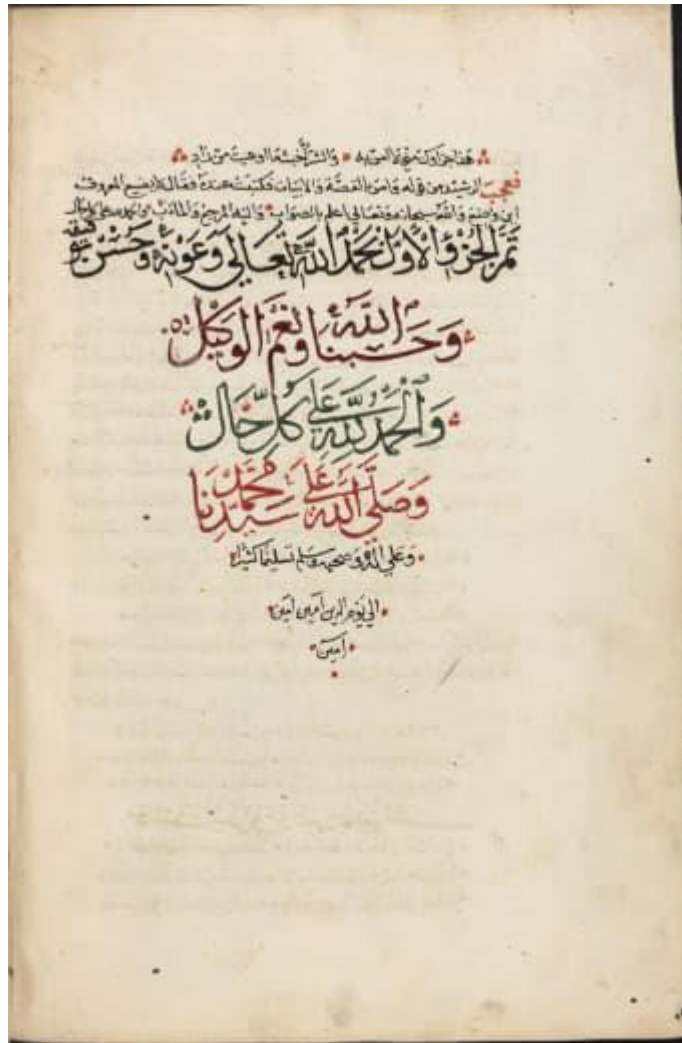 هذا جزاؤك مني لا اضن به والشر اخبث ما اوعيت من زاد
فعجب الرشيد من قوله وامر بالقصة والابيات فكتبت عنده فقال لا يضيع المعروف
اين وضع والله سبحانه وتعالى اعلم بالصواب واليه المرجع والمآب والحمد لله على كل حال
تَمَّ الجُزْؤُ الأَوَّلُ بِحَمْدِ اللهِ تَعَالي وَعَوْنِهِ وَحُسْنِ توفيقه
وَحَسبُنا اللهُ وَنِعْمَ الوَكِيْل
وَالحَمْدُ لِلّهِ عَلَى كُلِّ حَالْ
وَصَلَّى اللهُ عَلَى سَيِّدِنَا مُحَمَّدْ
وَعلي اله وصحبه وسلم تسليما كثيرا
الي يَوْمِ الدين امين امين
امِينَ